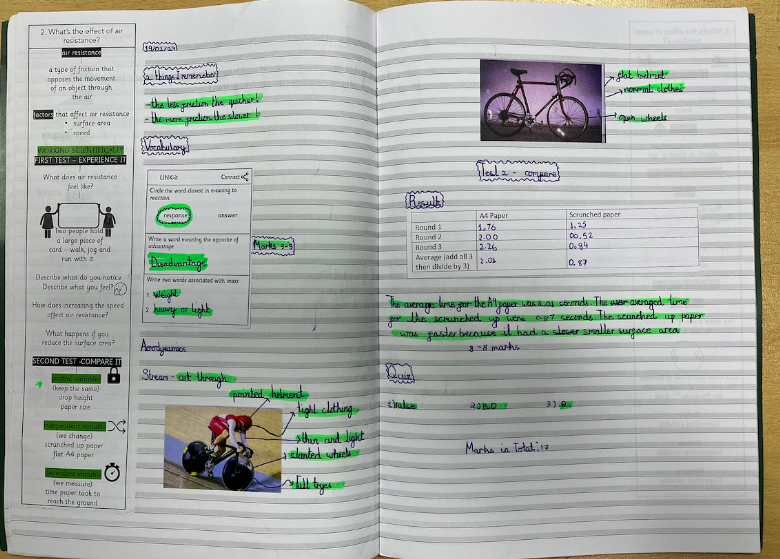 2. What's the effect of air
resistance?
air resistance
a type of friction that
opposes the movement
of an object through
the air
factors that affect air resistance
• surface area
• speed
WORKING SCIENTIFICALLY
FIRST TEST – EXPERIENCE IT
What does air resistance
feel like?
Two people hold
a large piece of
card – walk, jog and
run with it
Describe what do you notice.
Describe what you feel?
How does increasing the speed
affect air resistance?
What happens if you
reduce the surface area?
SECOND TEST -COMPARE IT
control variable
(keep the same)
drop height
paper size
independent variable
(we change)
scrunched up paper
flat A4 paper
dependent variable
(we measure)
time paper took to
reach the ground
19/01/24
2 things I remember
- the less friction the quicker!
- the more friction the slower!
Vocabulary
LING-it Connect
Circle the word closest in meaning to
reaction.
response answer
Write a word meaning the opposite of
advantage.
Disadvantage
Write two words associated with mass
1. weight
2. heavy or light
Marks 9-9
Aerodynamics
Stream - cut through
pointed helment
tight clothing
thin and light
slanted wheels
Full tryes
flat helmet
normal clothes
open wheels
Test 2 - compare
Result
A4 Paper Scrunched paper
Round 1 1.76 1.25
Round 2 2.00 00.52
Round 3 2.26 0.84
Average (add all 3
then divide by 3) 2.01 0.87
The average time for the A4 paper was 2.01 seconds. The averaged time
for the scrunched up were 0.87 seconds. The scrunched up paper
was faster because it had a slower smaller surface area
8 -8 marks
Quiz
1) False 2) B,D 3) B
Marks in Total: 17